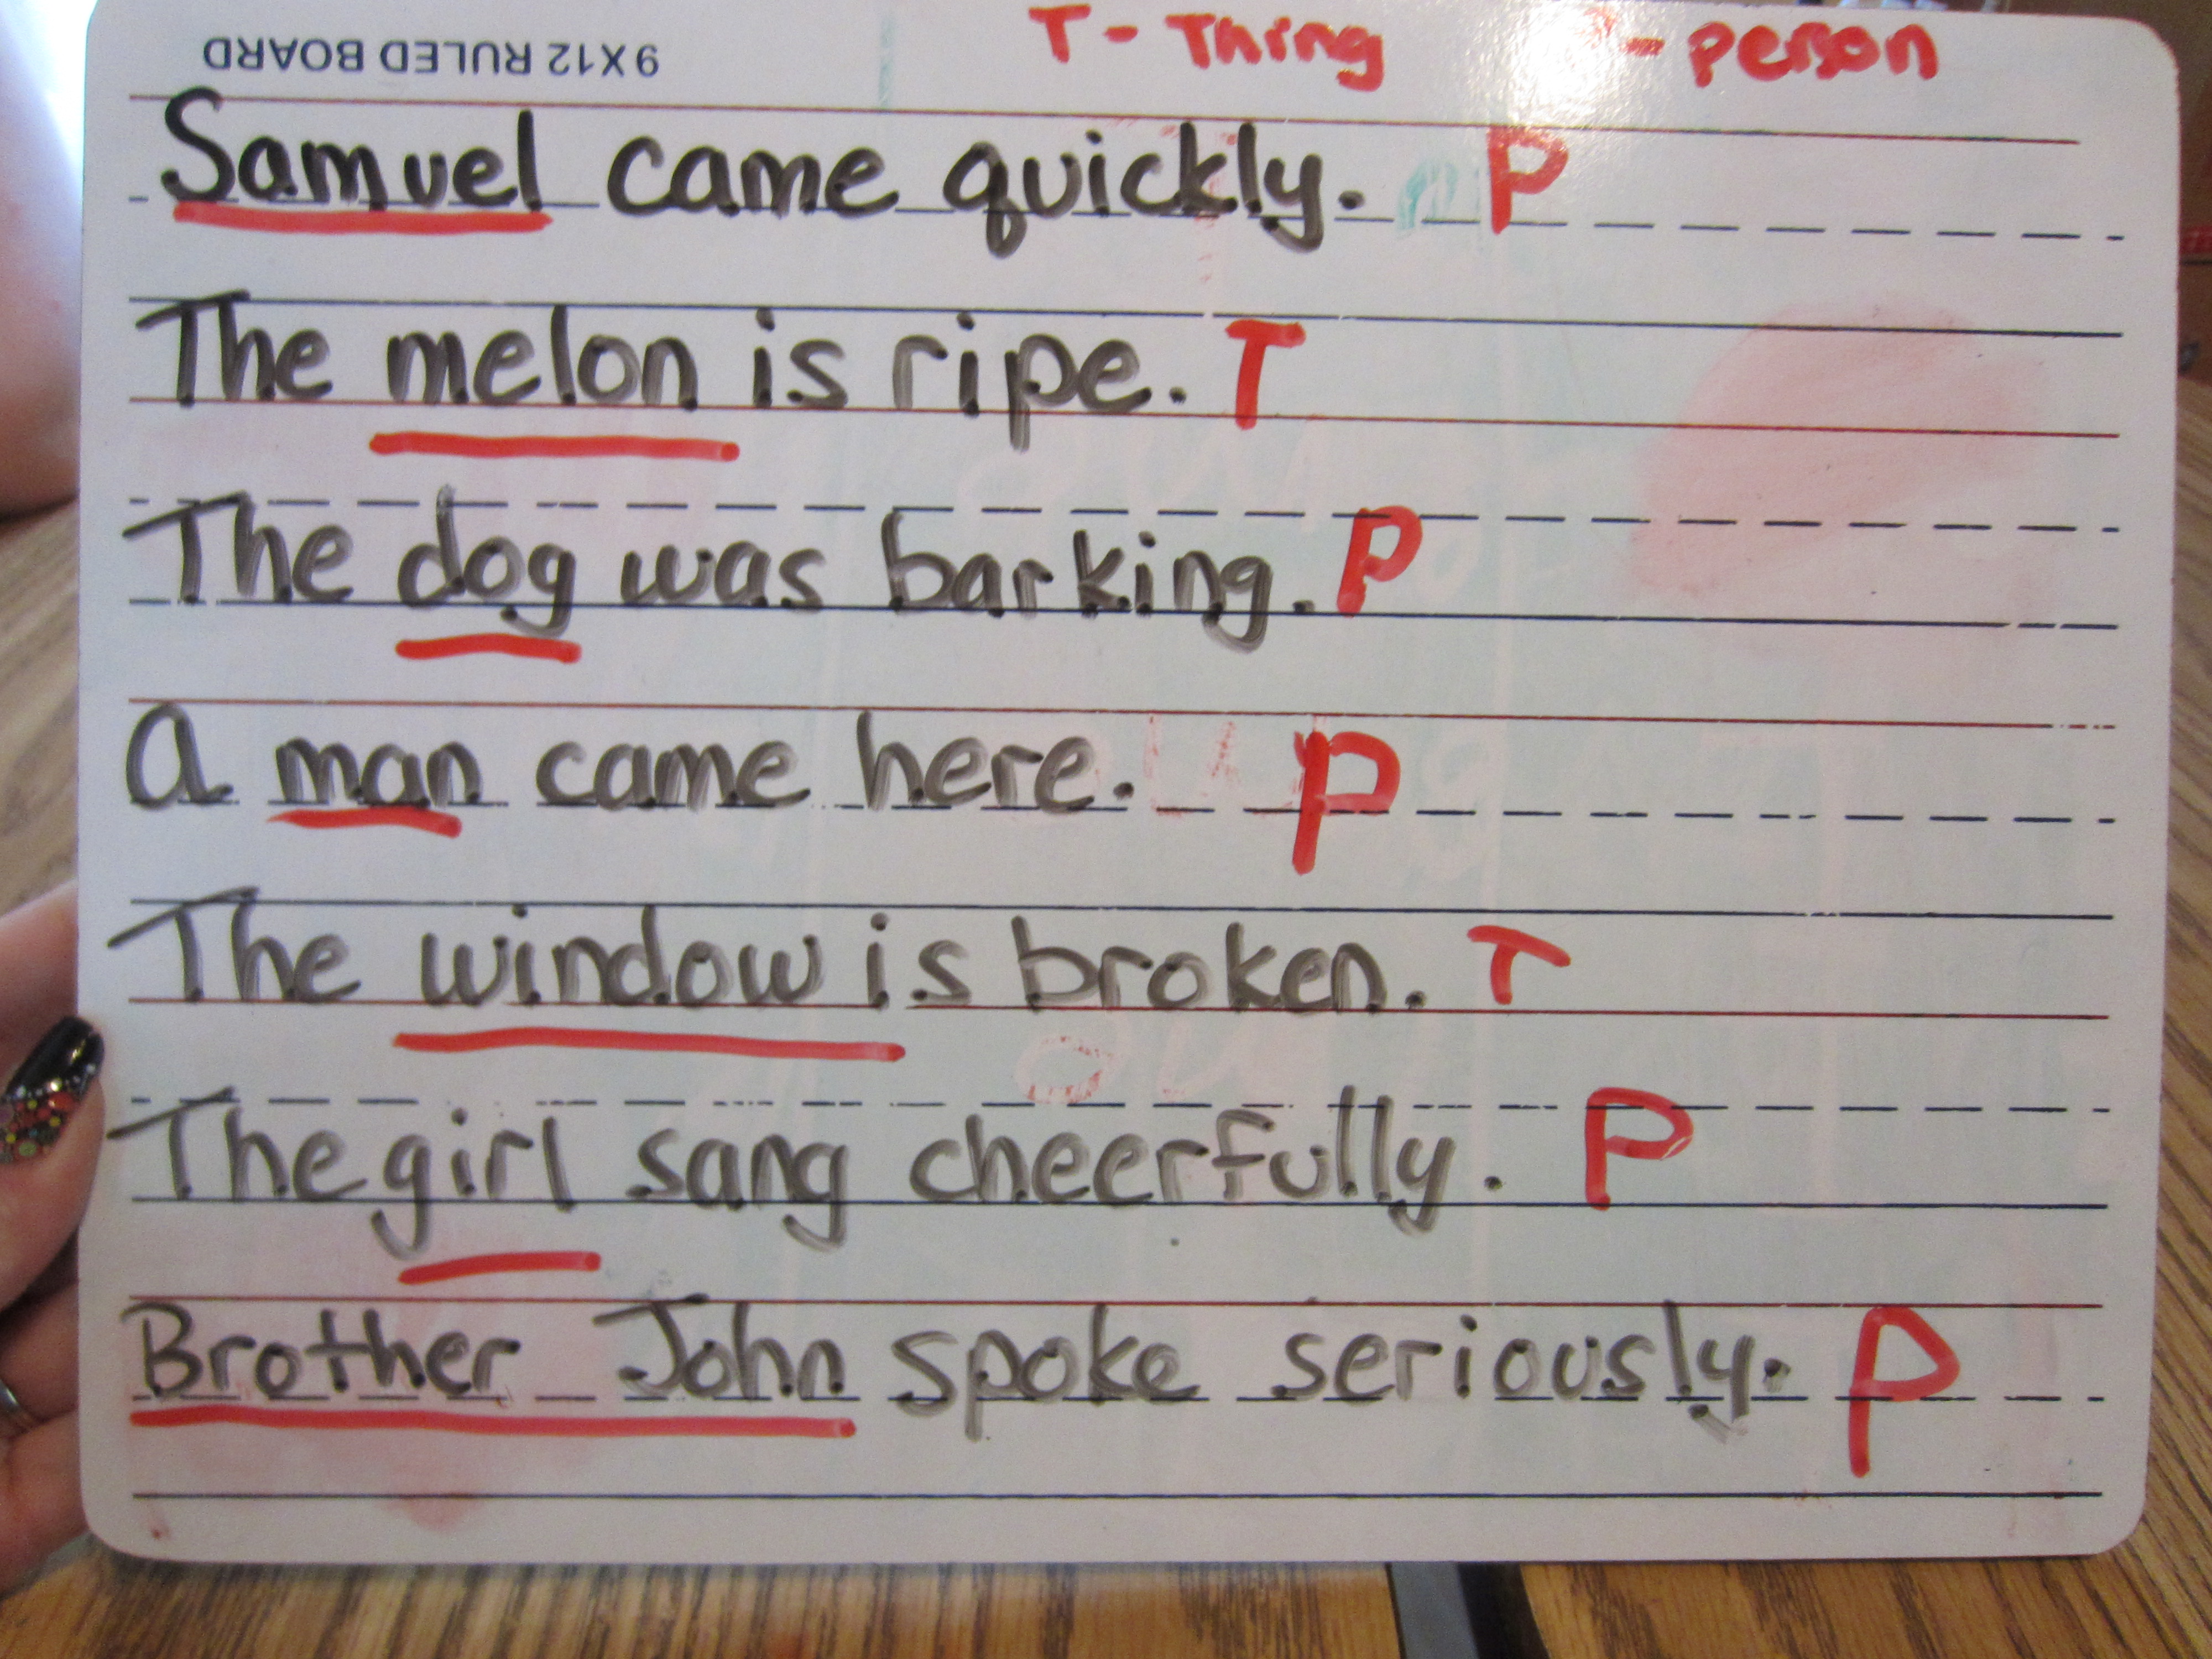 9 X 12 RULED BOARD
T - Thing - person
Samuel came quickly. P
The melon is ripe. T
The dog was barking. P
a man came here. P
The window is broken. T
The girl sang cheerfully. P
Brother John spoke seriously. P